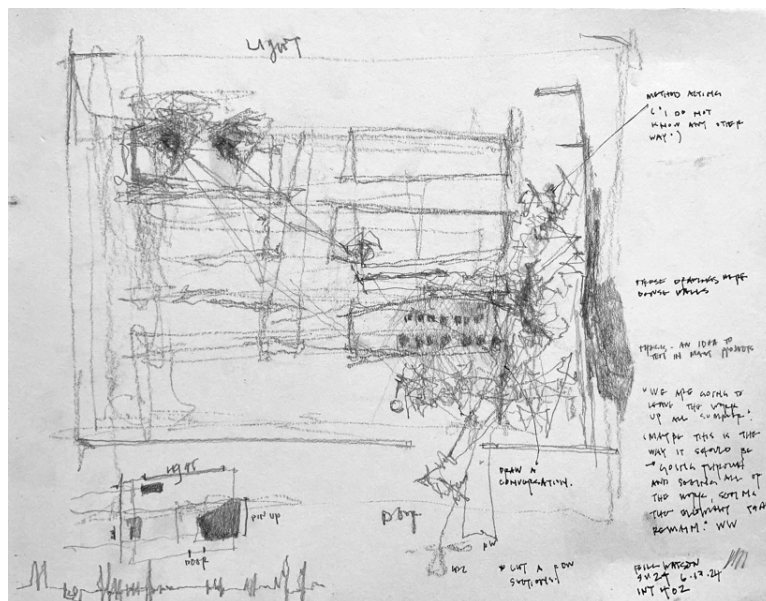 LIGHT
METHOD ACTING
("I DO NOT
KNOW ANY OTHER
WAY")
THOSE DRAWINGS MAKE
DENSE WALLS
THESIS - AN IDEA TO
TEST IN MANY
"WE ARE GOING TO
LEAVE THE WORK
UP ALL SUMMER."
(MAYBE THIS IS THE
WAY IT SHOULD BE
GOING THROUGH
AND SEEING ALL OF
THE WORK, SEEING
THE THAT
REMAIN." WW
DRAW A
CONVERSATION.
LIGHT
PIN UP
DOOR
DOOR
CUT A FEW
SECTIONS.
BILL WATSON
SU24 6.13.24
INT 402